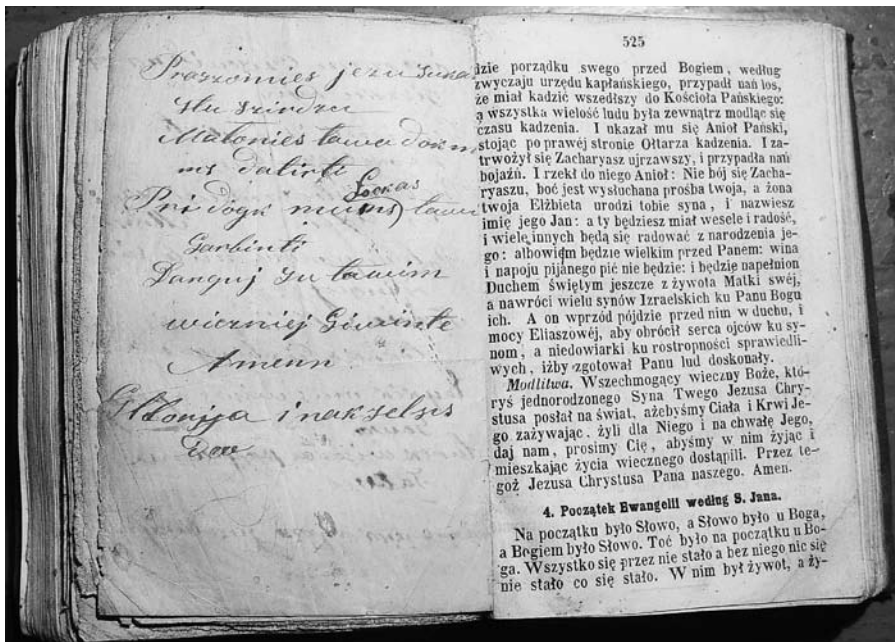 Praszomies jezu suka
stu szirdzu
Malonies tawa dok m
ms datirti
Sockas
Pri dogk mums tawi
Garbinti
Danguj su tawim
wieczniej Giwinte
Amenn
Glonija inakselsis
Dow
525
dzie porządku swego przed Bogiem, według
zwyczaju urzędu kapłańskiego, przypadł nań los,
że miał kadzić wszedłszy do Kościoła Pańskiego:
a wszystka wielość ludu była zewnątrz modląc się
czasu kadzenia. I ukazał mu się Anioł Pański,
stojąc po prawéj stronie Ołtarza kadzenia. I za-
trwożył się Zacharyasz ujrzawszy, i przypadła nań
bojaźń. I rzekł do niego Anioł: Nie bój się Zacha-
ryaszu, boć jest wysłuchana prośba twoja, a żona
twoja Elżbieta urodzi tobie syna, i nazwiesz
imię jego Jan: a ty będziesz miał wesele i radość,
i wiele innych będą się radować z narodzenia je-
go: albowiem będzie wielkim przed Panem: wina
i napoju pijanego pić nie będzie: i będzie napełnion
Duchem świętym jeszcze z żywota Matki swéj,
a nawróci wielu synów Izraelskich ku Panu Bogu
ich. A on wprzód pójdzie przed nim w duchu, i
mocy Eliaszowéj, aby obrócił serca ojców ku sy-
nom, a niedowiarki ku rostropności sprawiedli-
wych, iżby zgotował Panu lud doskonały.
Modlitwa. Wszechmogący wieczny Boże, któ-
ryś jednorodzonego Syna Twego Jezusa Chry-
stusa posłał na świat, ażebyśmy Ciała i Krwi Je-
go zażywając, żyli dla Niego i na chwałę Jego,
daj nam, prosimy Cię, abyśmy w nim żyjąc i
mieszkając życia wiecznego dostąpili. Przez te-
goż Jezusa Chrystusa Pana naszego. Amen.
4. Początek Ewangelii według S. Jana.
Na początku było Słowo, a Słowo było u Boga,
a Bogiem było Słowo. Toć było na początku u Bo-
ga. Wszystko się przez nie stało a bez niego nic się
nie stało co się stało. W nim był żywot, a ży-